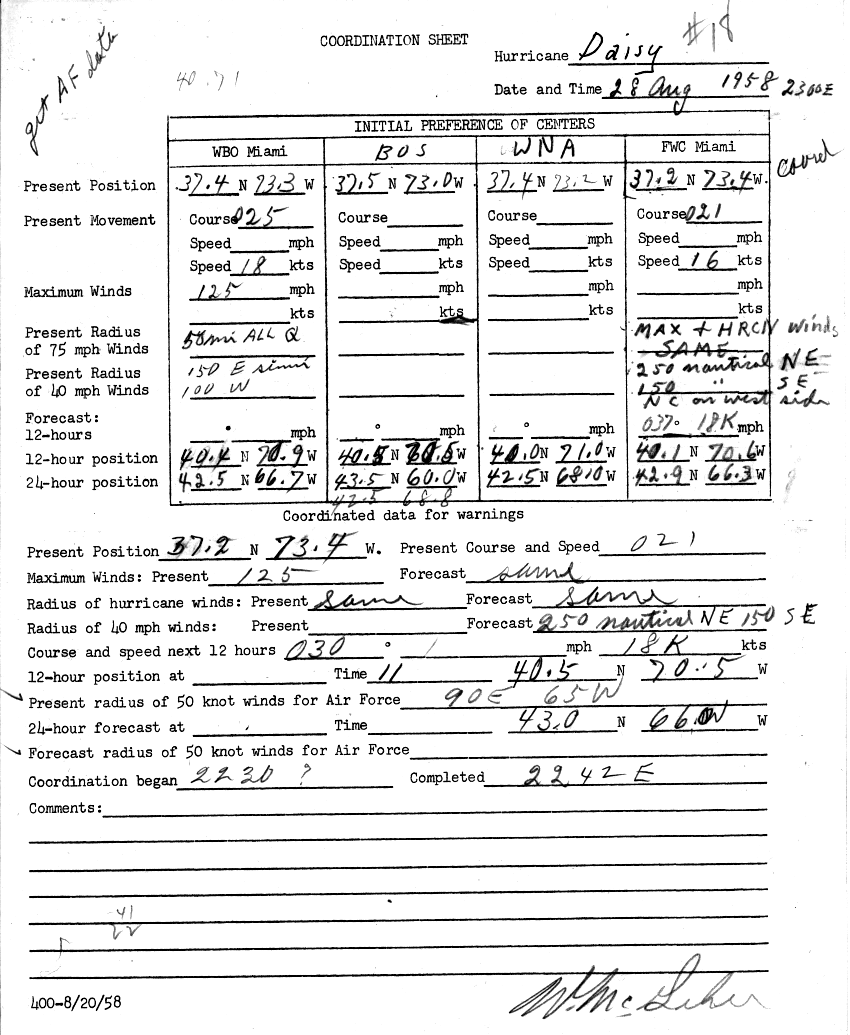 #18
COORDINATION SHEET
get AF data
40.71
Hurricane Daisy
Date and Time 28 Aug 1958 2300E
INITIAL PREFERENCE OF CENTERS
WBO Miami BOS WNA FWC Miami
Present Position 37.4 N 73.3 W 37.5 N 73.0 W 37.4 N 73.2 W 37.2 N 73.4 W.
Present Movement Course 025 Course Course Course 021
Speed mph Speed mph Speed mph Speed mph
Speed 18 kts Speed kts Speed kts Speed 16 kts
Maximum Winds 125 mph mph mph mph
kts kts kts kts
Present Radius 50mi ALL Q MAX + HRCN winds
of 75 mph Winds SAME
Present Radius 150 E 250 nautical NE
of 40 mph Winds 100 W 150 " SE
NC on west side
Forecast: 037° 18K
12-hours ° mph ° mph ° mph mph
12-hour position 40.4 N 70.9 W 40.5 N W 40.0 N 71.0 W 40.1 N 70.6 W
24-hour position 42.5 N 66.7 W 43.5 N 60.0 W 42.5 N 68.0 W 42.9 N 66.3 W
42.5 68.8
Coordinated data for warnings
Present Position 37.2 N 73.4 W. Present Course and Speed 021
Maximum Winds: Present 125 Forecast same
Radius of hurricane winds: Present Same Forecast same
Radius of 40 mph winds: Present Forecast 250 nautical NE 150 SE
Course and speed next 12 hours 030 ° mph 18K kts
12-hour position at Time 11 40.5 N 70.5 W
Present radius of 50 knot winds for Air Force 90E 65W
24-hour forecast at Time 43.0 N 66.0 W
Forecast radius of 50 knot winds for Air Force
Coordination began 2230 ? Completed 2242 E
Comments:
41
22
400-8/20/58